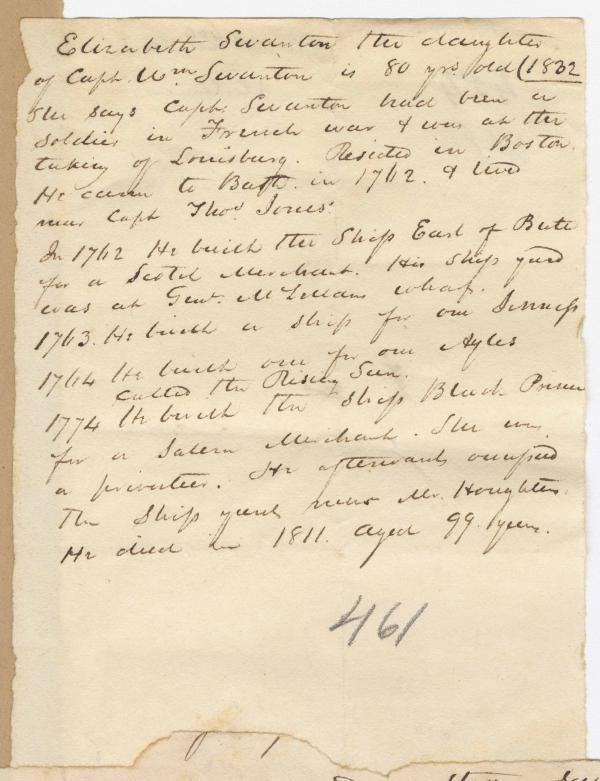 Elizabeth Swanton the daughter
of Capt. Wm Swanton is 80 yrs. old (1832
She says Capt. Swanton had been a
Soldier in French war & was at the
taking of Louisburg. Resided in Boston.
He came to Bath. in 1762. & lived
near Capt Thos. Jones.
In 1762 He built the Ship Earl of Bute
for a Scotch Merchant. His Ship yard
was at Genl. McLellans wharf.
1763. He built a Ship for one Jenness
1764 He built one for one Ayles
called the Rising Sun.
1774 He built the Ship Black Prince
for a Salem Merchant. She was
a privateer. He afterwards occupied
the Ship yard near Mr. Houghtons.
He died in 1811. aged 99. years.
461